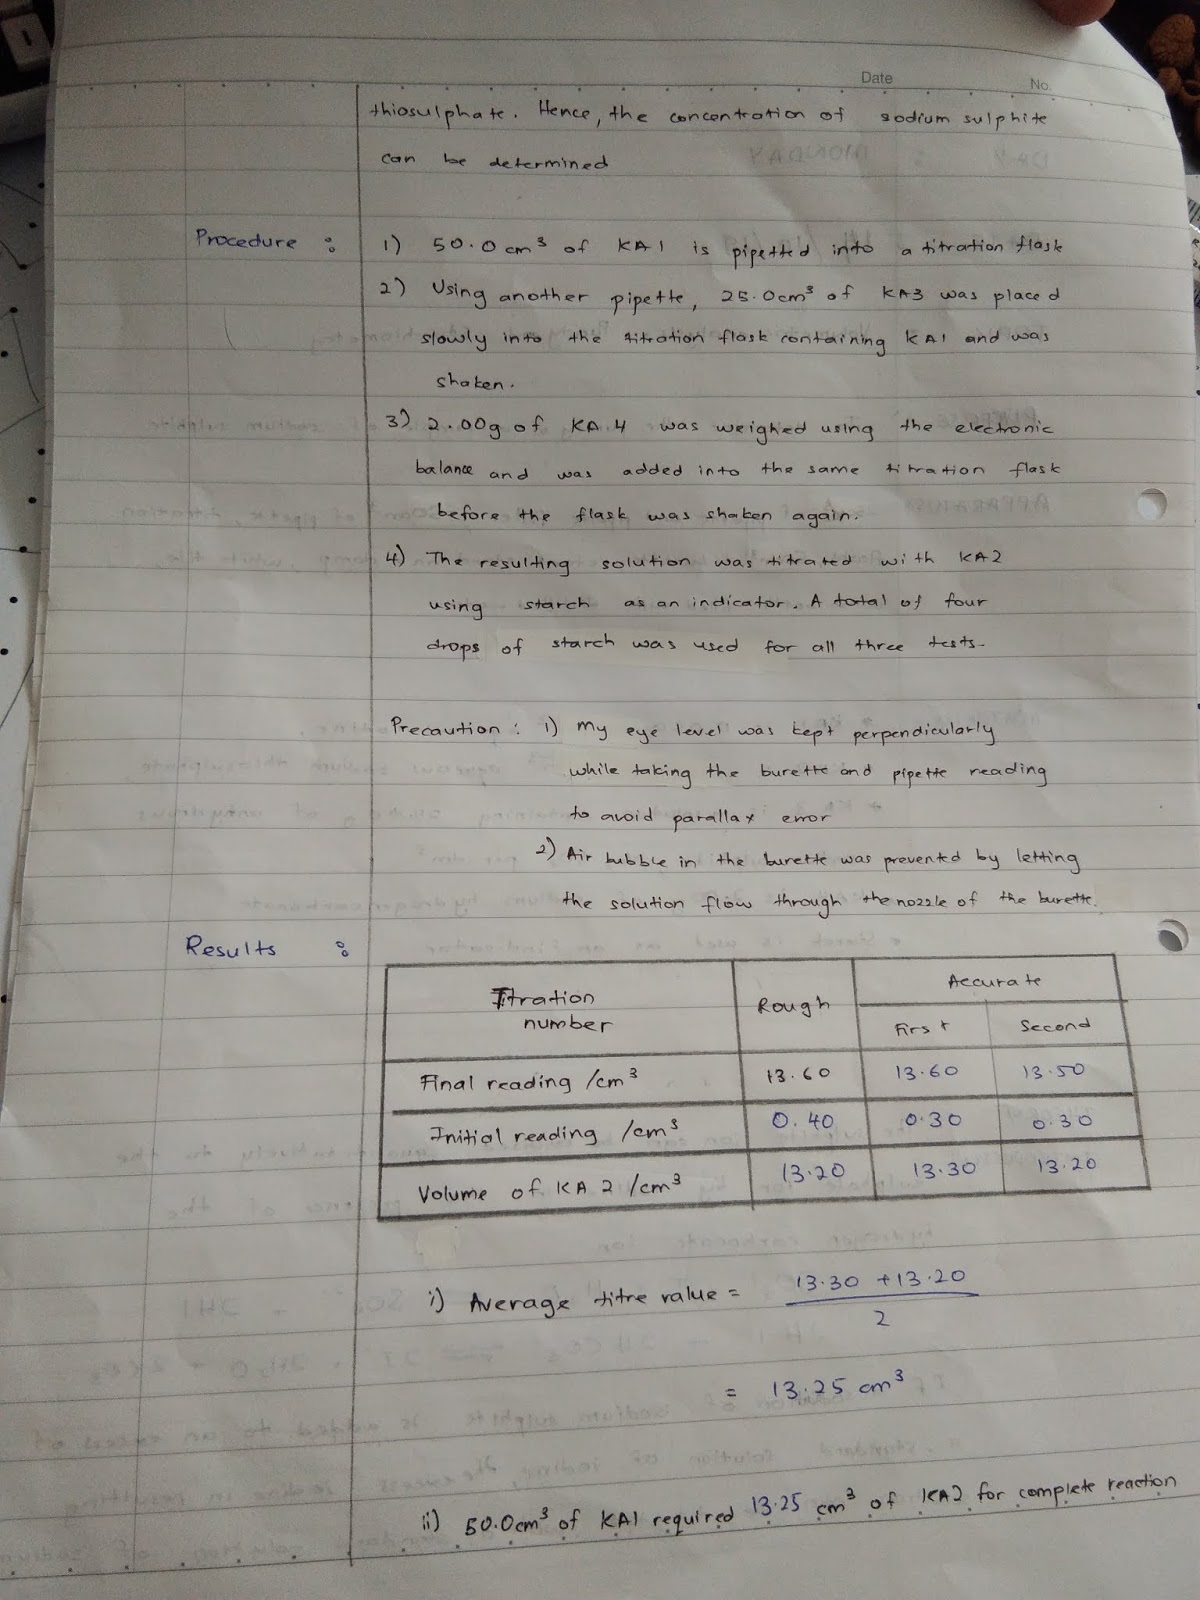 Date
No.
thiosulphate. Hence, the concentration of sodium sulphite
can be determined
Procedure :
1) 50.0cm³ of KA1 is pipetted into a titration flask
2) Using another pipette, 25.0cm³ of KA3 was placed
slowly into the titration flask containing KA1 and was
shaken.
3) 2.00g of KA4 was weighed using the electronic
balance and was added into the same titration flask
before the flask was shaken again.
4) The resulting solution was titrated with KA2
using starch as an indicator. A total of four
drops of starch was used for all three tests.
Precaution : 1) My eye level was kept perpendicularly
while taking the burette and pipette reading
to avoid parallax error
2) Air bubble in the burette was prevented by letting
the solution flow through the nozzle of the burette.
Results :
Titration number Rough Accurate
First Second
Final reading /cm³ 13.60 13.60 13.50
Initial reading /cm³ 0.40 0.30 0.30
Volume of KA 2 /cm³ 13.20 13.30 13.20
i) Average titre value = 13.30 + 13.20
2
= 13.25 cm³
ii) 50.0cm³ of KA1 required 13.25 cm³ of KA2 for complete reaction